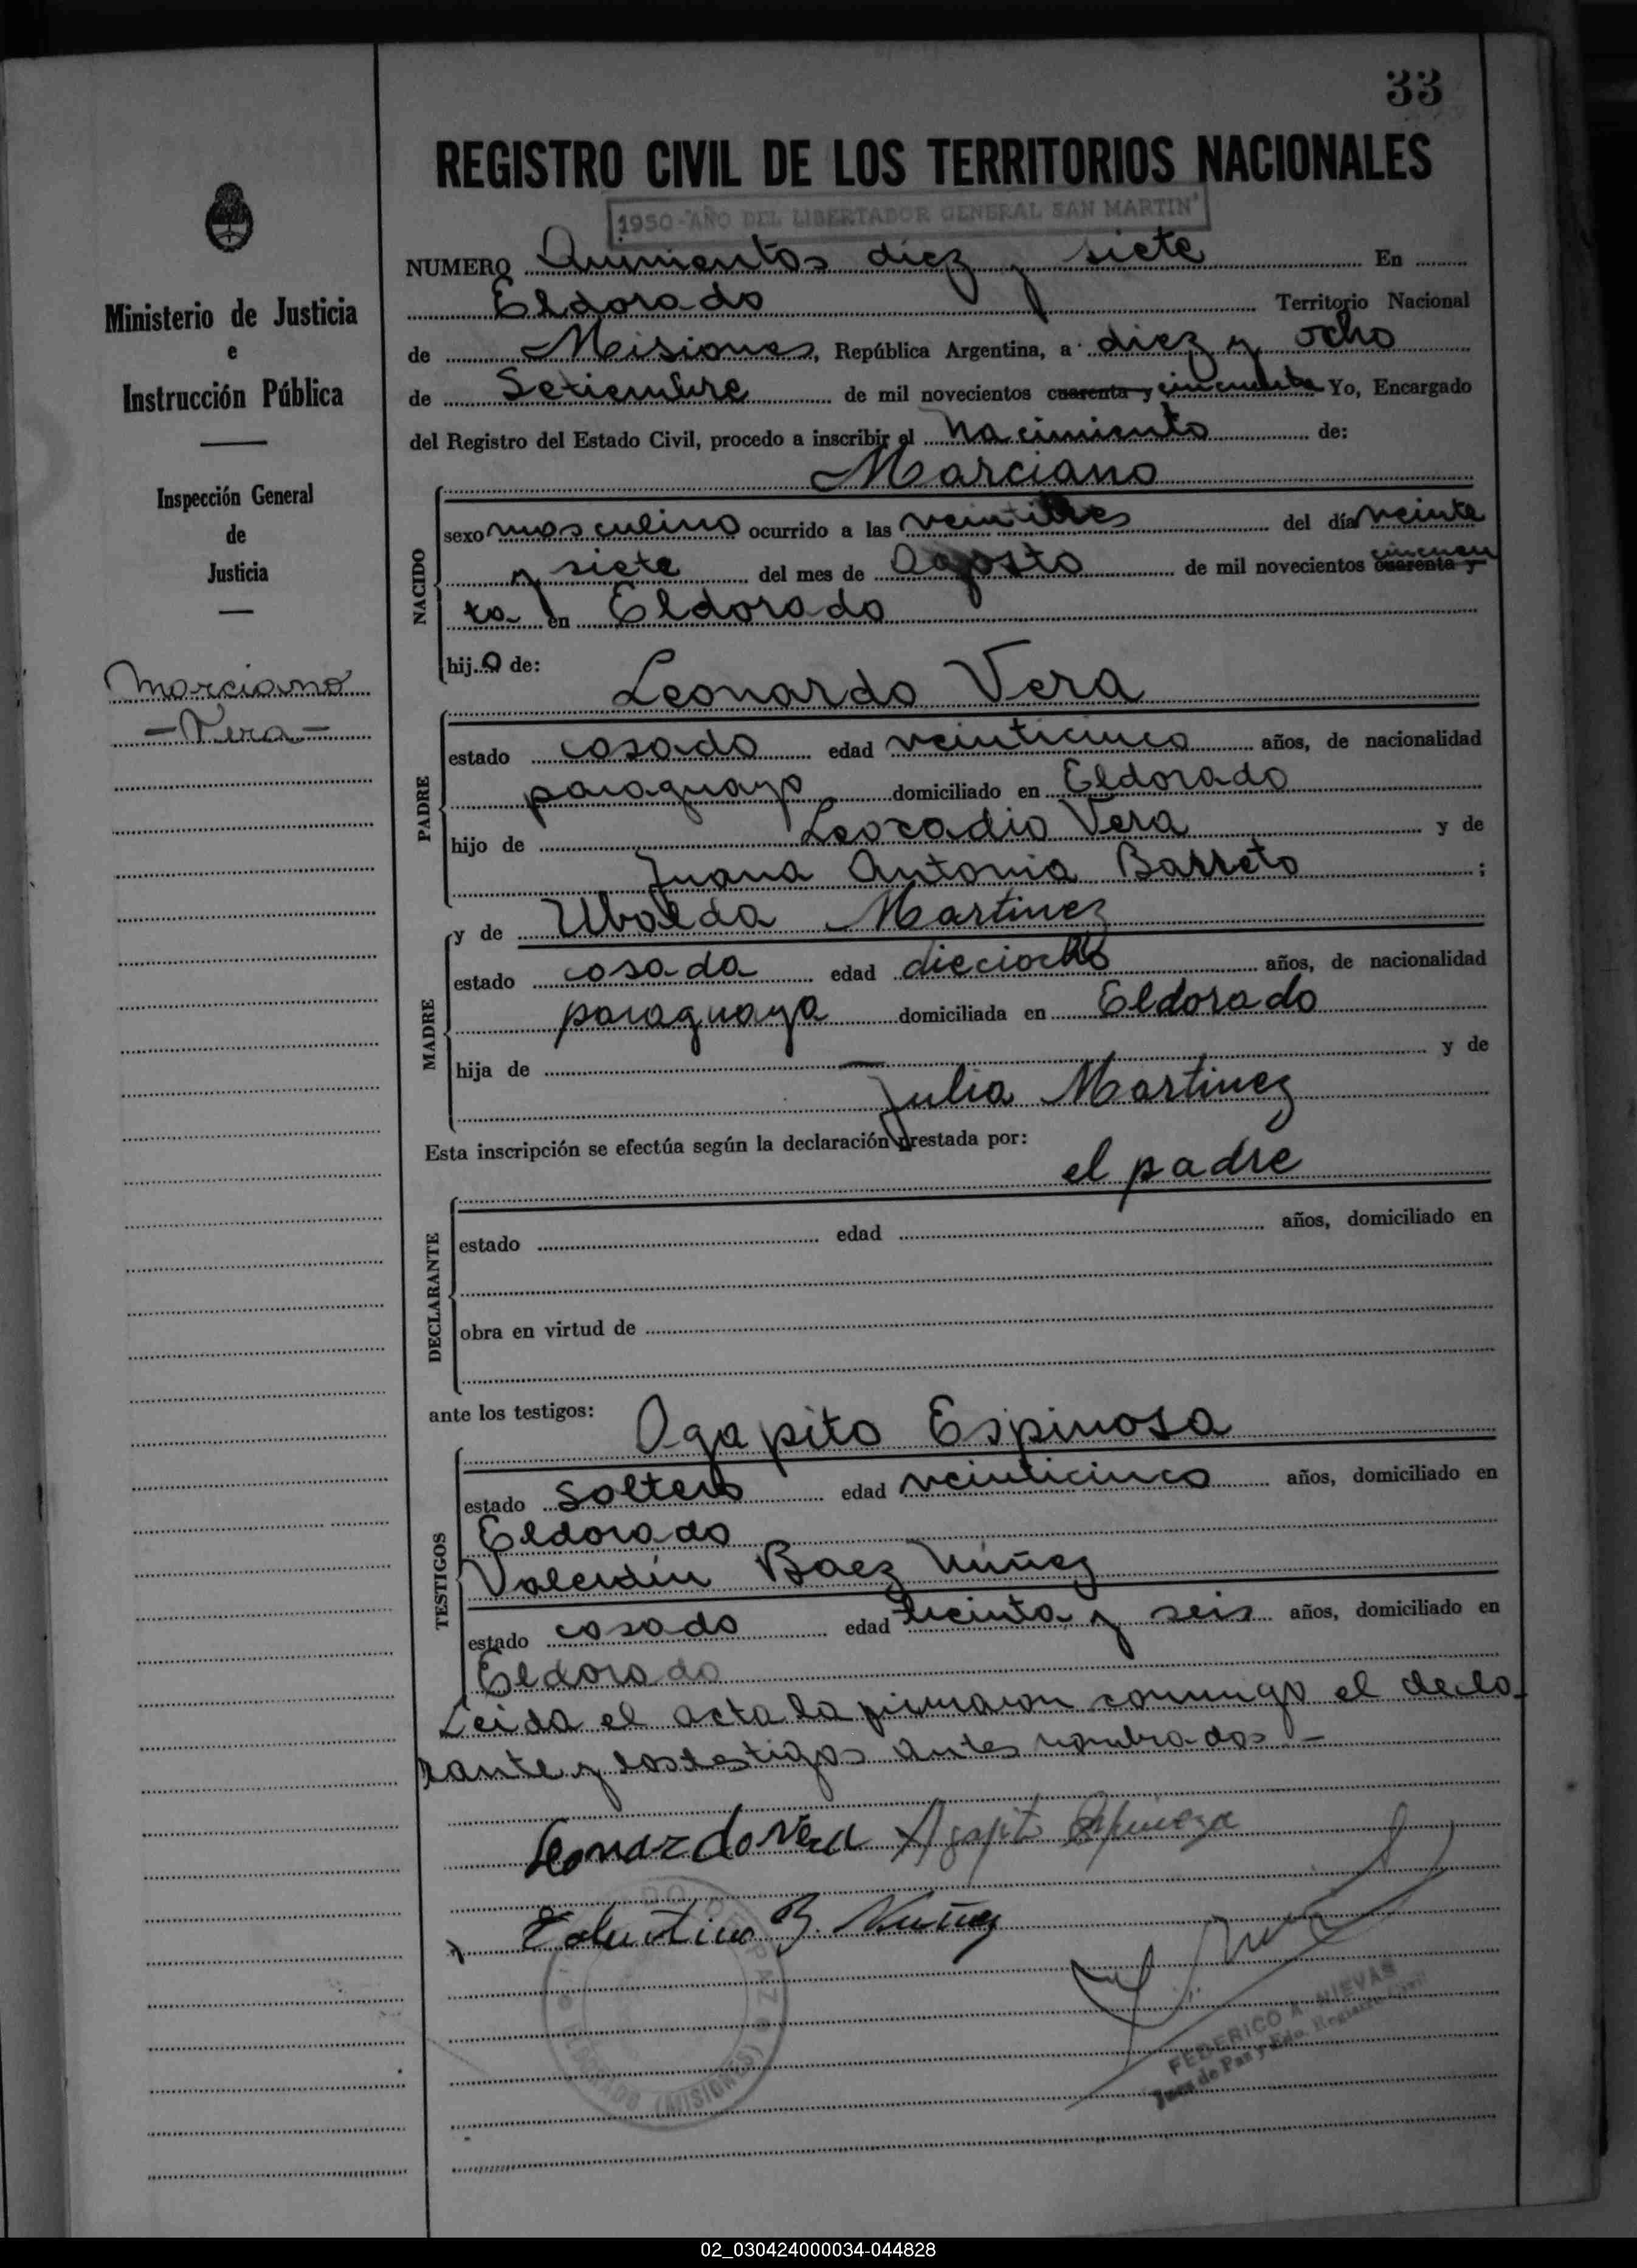 33
REGISTRO CIVIL DE LOS TERRITORIOS NACIONALES
1950-"AÑO DEL LIBERTADOR GENERAL SAN MARTIN"
NUMERO Quinientos diez y siete En
Eldorado Territorio Nacional
de Misiones, República Argentina, a diez y ocho
de Setiembre de mil novecientos cuarenta y cincuenta Yo, Encargado
del Registro del Estado Civil, procedo a inscribir el nacimiento de:
Marciano
NACIDO
sexo masculino ocurrido a las veintitres del día veinte
y siete del mes de Agosto de mil novecientos cuarenta y cincuen
ta en Eldorado
hijo de:
Leonardo Vera
PADRE
estado casado edad veinticinco años, de nacionalidad
paraguayo domiciliado en Eldorado
hijo de Leocadio Vera y de
Juana Antonia Barreto ;
y de Ubalda Martinez
MADRE
estado casada edad dieciocho años, de nacionalidad
paraguaya domiciliada en Eldorado
hija de — y de
Julia Martinez
Esta inscripción se efectúa según la declaración prestada por:
el padre
DECLARANTE
estado edad años, domiciliado en
obra en virtud de
ante los testigos:
Agapito Espinosa
TESTIGOS
estado soltero edad veinticinco años, domiciliado en
Eldorado
Valentín Baez Núñez
estado casado edad treinta y seis años, domiciliado en
Eldorado
Leida el acta la firmaron conmigo el decla-
rante y los testigos antes nombrados -
Leonardo Vera Agapito Espinoza
B. Nuñez
FEDERICO A. NIEVAS
Juez de Paz y Edo. Registro Civil
DO DE PAZ
ELDORADO (MISIONES)
Ministerio de Justicia
e
Instrucción Pública
Inspección General
de
Justicia
Marciano
-Vera-
02_030424000034-044828